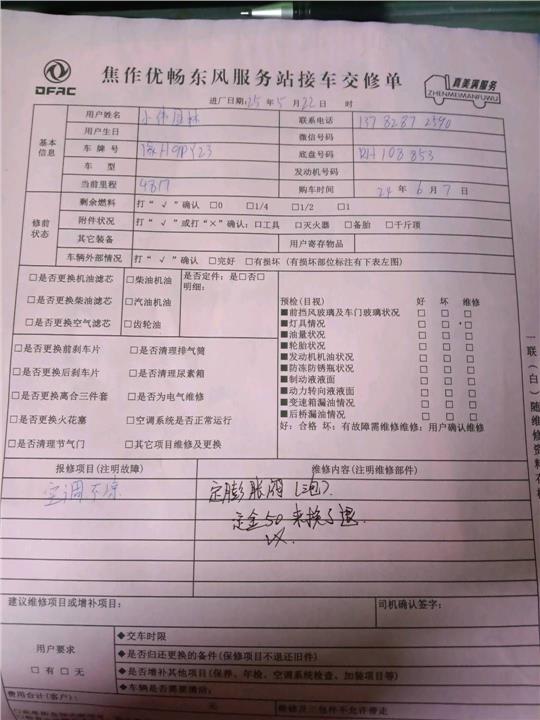 DFAC
焦作优畅东风服务站接车交修单
真美满服务
ZHENMEIMANFUWU
进厂日期:25年5月22日 时
基本信息
用户姓名
联系电话 137 8287 2590
用户生日
微信号码
车牌号 豫H9PY23
底盘号码 RH108853
车型
发动机号码
当前里程 4817
购车时间 24年6月7日
修前状态
剩余燃料 打“√”确认 □0 □1/4 □1/2 □1
附件状况 打“√”或打“×”确认:□工具 □灭火器 □备胎 □千斤顶
其它装备 用户寄存物品
车辆外部情况 打“√”确认 □完好 □有损坏(有损坏部位标注有下表左图)
□是否更换机油滤芯 □柴油机油 是否定件:是□否□
明细:
□是否更换柴油滤芯 □汽油机油
□是否更换空气滤芯 □齿轮油
预检(目视) 好 坏 维修
■前挡风玻璃及车门玻璃状况 □ □ □
■灯具情况 □ □ □
■油量状况 □ □ □
■轮胎状况 □ □ □
■发动机机油状况 □ □ □
■防冻防锈瓶状况 □ □ □
■制动液液面 □ □ □
■动力转向液液面 □ □ □
■变速箱漏油情况 □ □ □
■后桥漏油情况 □ □ □
好:合格 坏:有故障需维修维修:用户确认维修
□是否更换前刹车片 □是否清理排气筒
□是否更换后刹车片 □是否清理尿素箱
□是否更换离合三件套 □是否为电气维修
□是否更换火花塞 □空调系统是否正常运行
□是否清理节气门 □其它项目维修及更换
报修项目(注明故障) 维修内容(注明维修部件)
空调不凉 定膨胀阀(三包).
定金50 来换了退.
建议维修项目或增补项目: 司机确认签字:
用户要求
□有□无
◆交车时限
◆是否归还更换的备件(保修项目不退还旧件)
◆是否增补其他项目(保养、年检、空调系统检查、加装项目等)
◆车辆是否需要清洁:
费用合计(客户): 元
一联(白)随维修资料存档